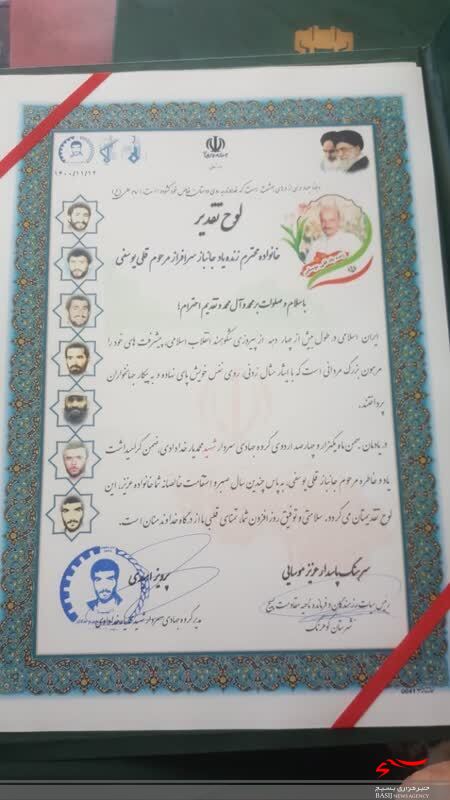 ۱۴۰۰/۱۱/۱۲
لوح تقدیر
خانواده محترم زنده یاد جانباز سرافراز مرحوم قلی یوسفی
با سلام و صلوات بر محمد و آل محمد و تقدیم احترام؛
ایران اسلامی در طول بیش از چهار دهه از پیروزی شکوهمند انقلاب اسلامی، پیشرفت های خود را
مرهون بزرگ مردانی است که با ایثار مثال زدنی، روی نفس خویش پای نهاده و به پیکار جهانخواران
پرداختند.
در یادمان بهمن ماه یکهزار و چهارصد اردوی گروه جهادی سردار شهید محمدیار خدادادی، ضمن گرامیداشت
یاد و خاطره مرحوم جانباز قلی یوسفی، به پاس چندین سال صبر و استقامت خالصانه شما خانواده عزیز، این
لوح تقدیمتان می گردد. سلامتی و توفیق روز افزون شما، تمنای قلبی ما از درگاه خداوند منان است.
سرهنگ پاسدار عزیز موسایی
رییس هیات رزمندگان و فرمانده ناحیه مقاومت بسیج
شهرستان کوهرنگ
پرویز اسدی
مدیر گروه جهادی سردار شهید محمدیار خدادادی
خبرگزاری بسیج
BASIJ NEWS AGENCY